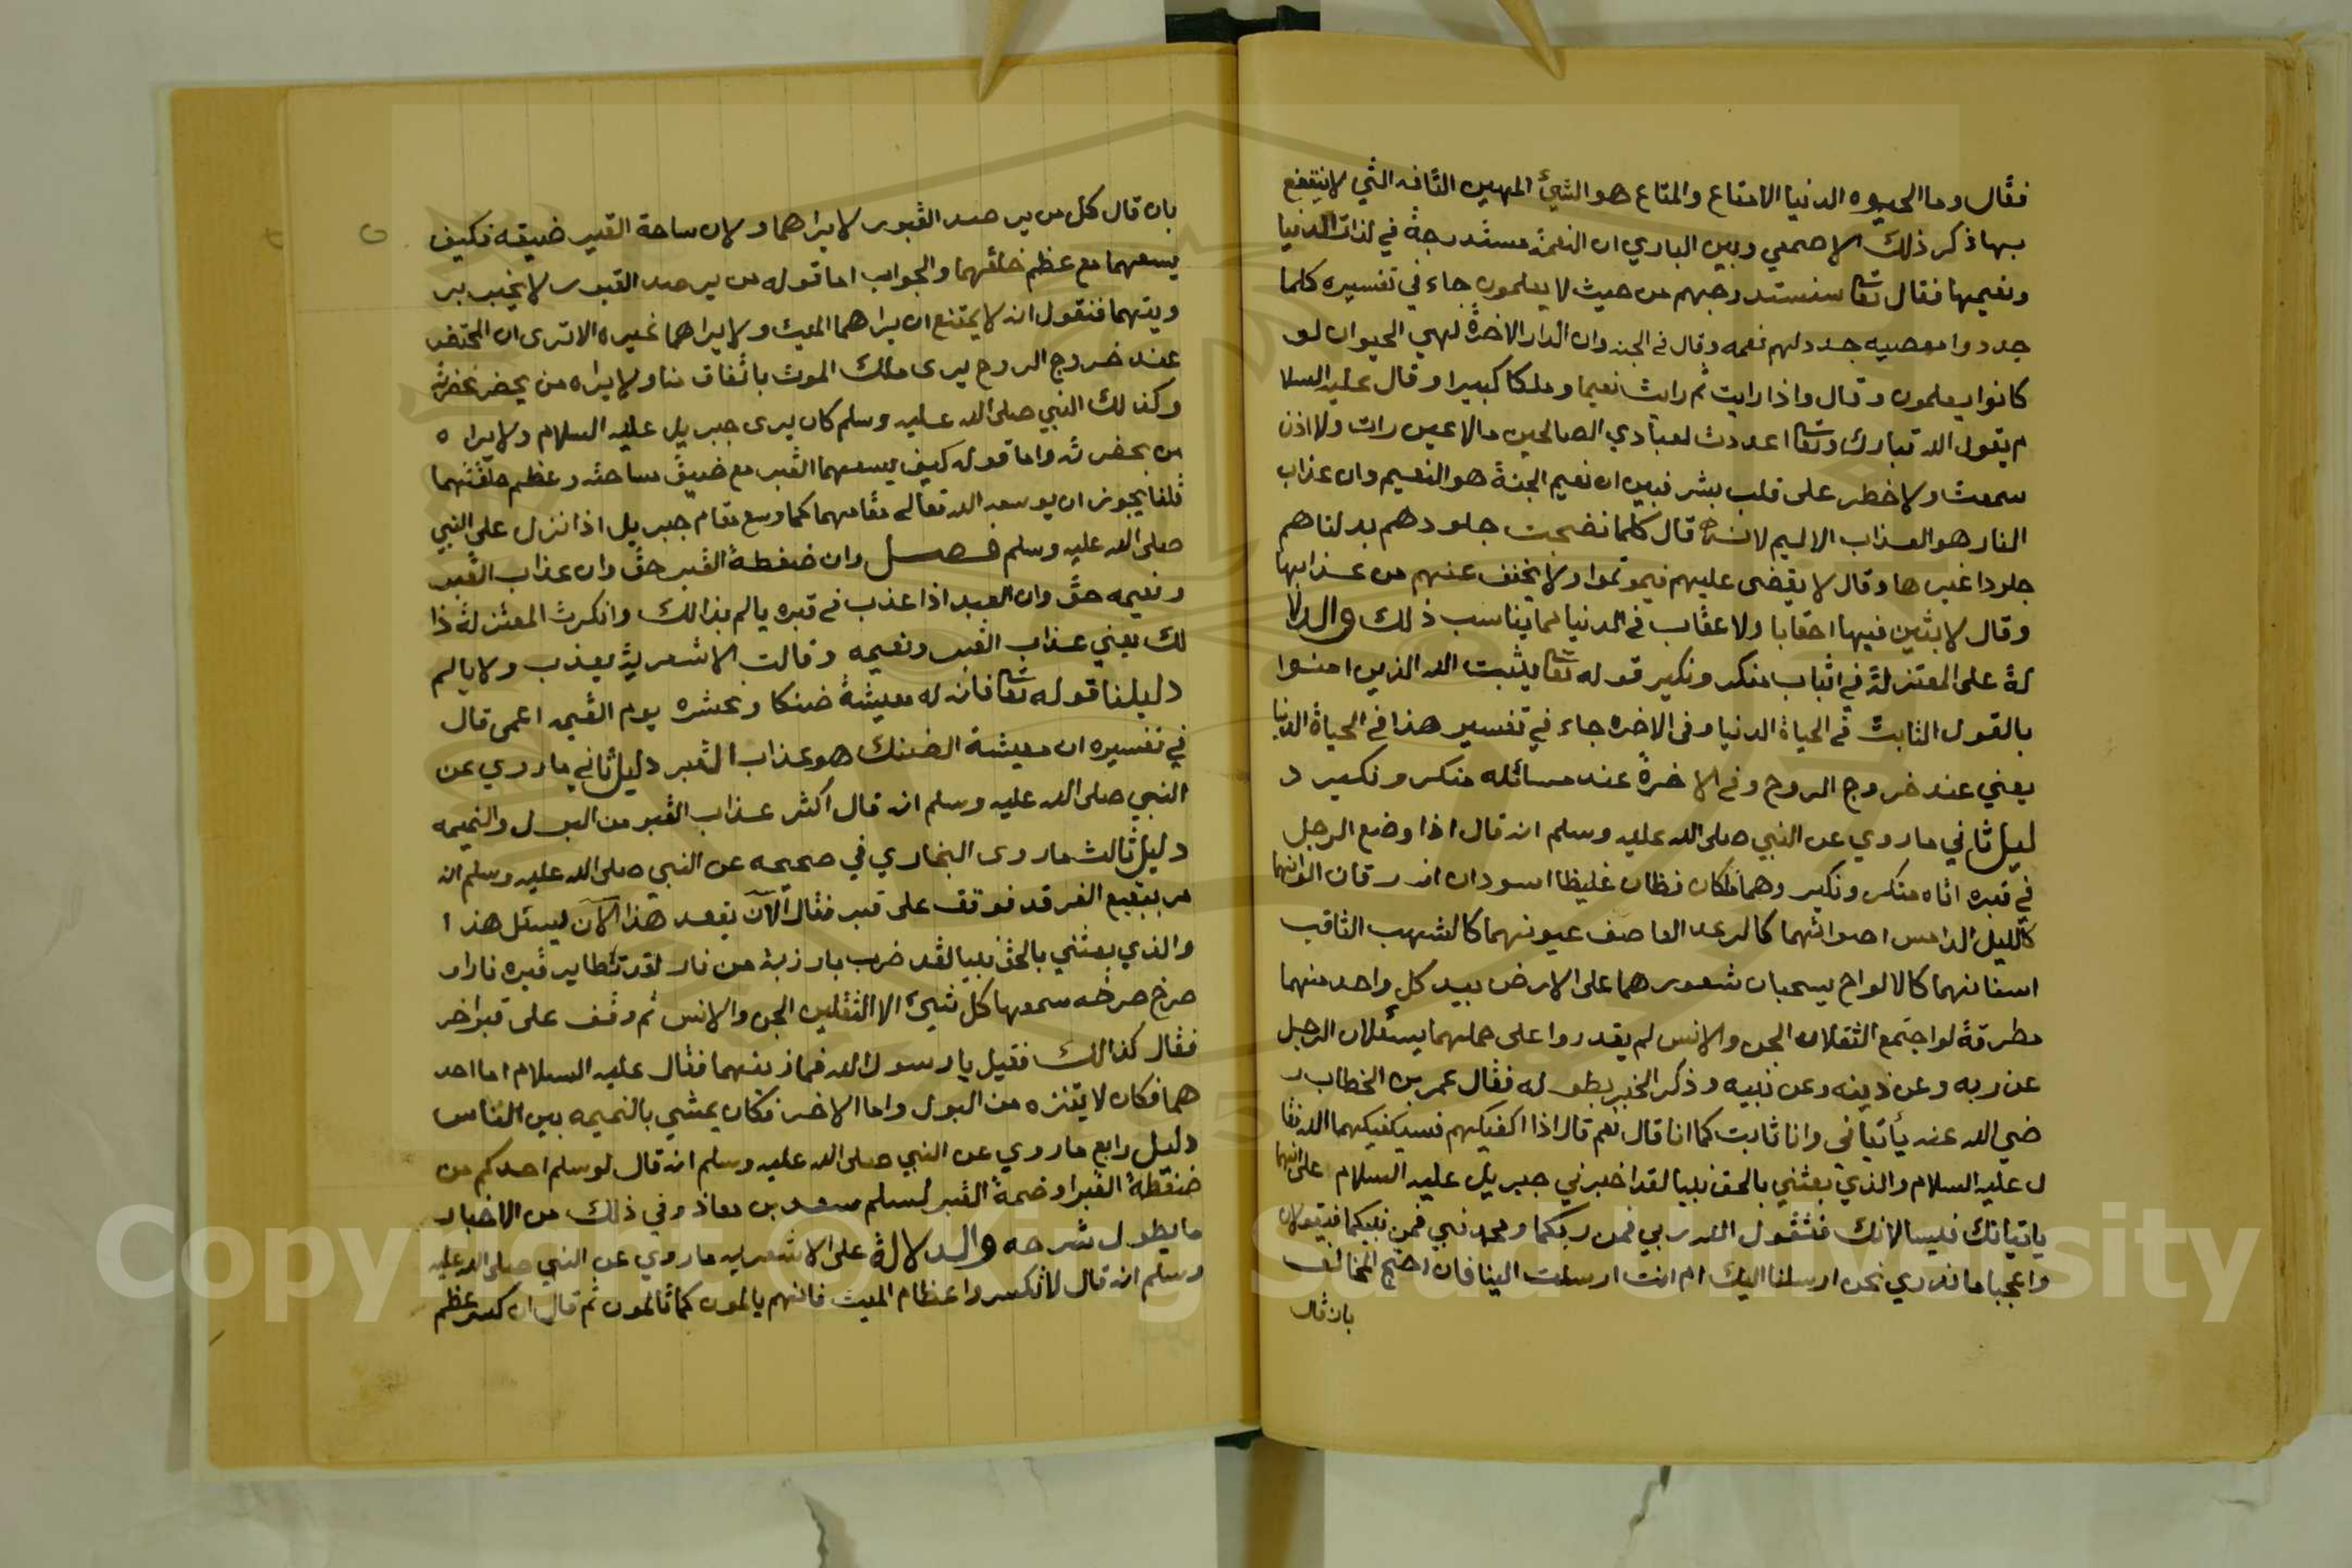 فقال وما الحيوه الدنيا الا متاع والمتاع هو الشيئ المهين التافه الذي لا ينتفع
بها ذكر ذلك الاصمعي وبين الباري ان النعمة مستدرجة في لذات الدنيا
ونعيمها فقال تعا سنستدرجهم من حيث لا يعلمون جاء في تفسيره كلما
جددوا معصيه جدد لهم نعمه وقال في الجنه وان الدار الاخرة لهي الحيوان لو
كانوا يعلمون وقال واذا رايت ثم رايت نعيما وملكا كبيرا وقال عليه السلا
م يقول الله تبارك وتعا اعددت لعبادي الصالحين مالا عين رات ولا اذن
سمعت ولا خطر على قلب بشر فبين ان نعيم الجنة هو النعيم وان عذاب
النار هو العذاب الاليم لانه قال كلما نضجت جلودهم بدلناهم
جلودا غيرها وقال لا يقضى عليهم فيموتوا ولا يخفف عنهم من عذابها
وقال لابثين فيها احقابا ولا عقاب في الدنيا لما يناسب ذلك والدلا
لة على المعتزلة في اثبات منكر ونكير قوله تعا يثبت الله الذين امنوا
بالقول الثابت في الحياة الدنيا وفى الاخره جاء في تفسير هذا في الحياة الدنيا
يعني عند خروج الروح وفي الاخرة عند مسائله منكر ونكير د
ليل ثاني ما روي عن النبي صلى الله عليه وسلم انه قال اذا وضع الرجل
في قبره اتاه منكر ونكير وهما ملكان فظان غليظا اسودان ازرقان الوانهما
كالليل الدامس اصواتهما كالرعد العاصف عيونهما كالشهب الثاقب
اسنانهما كالالواح يسحبان شعورهما على الارض بيد كل واحد منهما
مطرقة لو اجتمع الثقلان الجن والانس لم يقدروا على حملهما يسئلان الرجل
عن ربه وعن دينه وعن نبيه وذكر الخبر بطوله فقال عمر بن الخطاب ر
ضي الله عنه يأتياني وانا ثابت كما انا قال نعم قال اذا اكفيكهم فسيكفيكهما الله فقا
ل عليه السلام والذي بعثني بالحق نبيا لقد اخبرني جبريل عليه السلام على انهما
ياتيانك فيسالانك فتقول الله ربي فمن ربكما ومحمد نبي فمن نبيكما فيقولان
واعجبا ما ندري نحن ارسلنا اليك ام انت ارسلت الينا فان احتج المخالف
بان قال
بان قال كل من يرصد القبور لا يراهما ولان ساحة القبر ضيقه فكيف
يسعهما مع عظم خلقهما والجواب اما قوله من يرصد القبور لا يخبر بر
ويتهما فنقول انه لا يمتنع ان يراهما الميت ولا يراهما غيره الا ترى ان المحتضر
عند خروج الروح يرى ملك الموت باتفاق منا ولا يراه من يحضر بحضرته
وكذلك النبي صلى الله عليه وسلم كان يرى جبريل عليه السلام ولا يراه
من بحضرته واما قوله كيف يسعهما القبر مع ضيق ساحته وعظم خلقتهما
قلنا يجوز ان يوسع الله تعالى مقامهما كما وسع مقام جبريل اذا نزل على النبي
صلى الله عليه وسلم فصل وان ضغطة القبر حق وان عذاب القبر
ونعيمه حق وان العبد اذا عذب في قبره يالم بذالك وانكرت المعتزلة ذا
لك يعني عذاب القبر ونعيمه وقالت الاشعرية يعذب ولا يالم
دليلنا قوله تعا فان له معيشة ضنكا ونحشره يوم القيمه اعمى قال
في تفسيره ان معيشة الضنك هو عذاب القبر دليل ثاني ما روي عن
النبي صلى الله عليه وسلم انه قال اكثر عذاب القبر من البول والنميمه
دليل ثالث ما روى البخاري في صحيحه عن النبي صلى الله عليه وسلم انه
مر ببقيع الغرقد فوقف على قبر فقال الآن يقعد هذا الآن يسئل هذا
والذي بعثني بالحق نبيا لقد ضرب بارزبة من نار لقد تطاير قبره نارا
صرخ صرخه سمعها كل شيئ الا الثقلين الجن والانس ثم وقف على قبر اخر
فقال كذالك فقيل يا رسول الله فما ذنبهما فقال عليه السلام اما احد
هما فكان لا يتنزه من البول واما الاخر فكان يمشي بالنميمه بين الناس
دليل رابع ما روي عن النبي صلى الله عليه وسلم انه قال لو سلم احدكم من
ضغطة القبر او ضمة القبر لسلم سعد بن معاذ وفي ذلك من الاخبار
ما يطول شرحه والدلالة على الاشعريه ما روي عن النبي صلى الله عليه
وسلم انه قال لا تكسروا عظام الميت فانهم يالمون كما تالمون ثم قال ان كسر عظم
Copyright © King Saud University